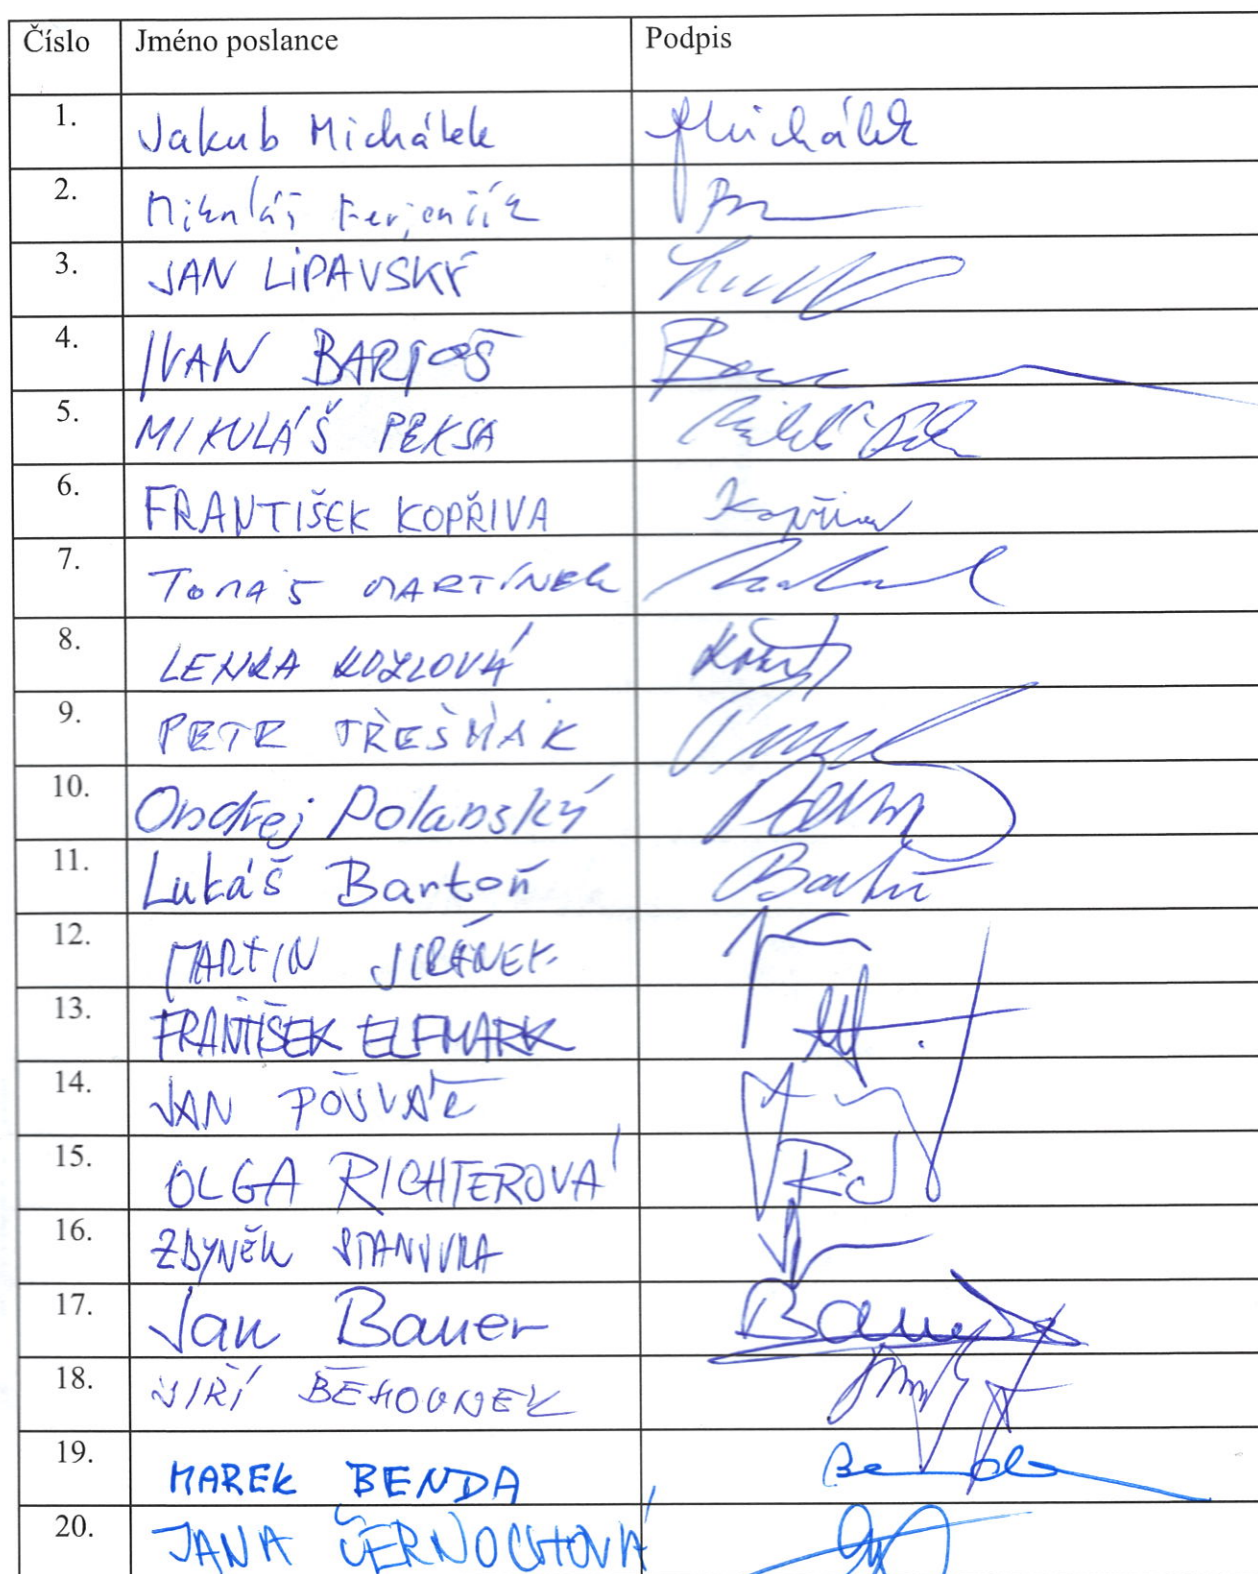 Číslo Jméno poslance Podpis
1. Jakub Michálek Michálek
2. Mikuláš Ferjenčík
3. JAN LIPAVSKÝ
4. IVAN BARTOŠ
5. MIKULÁŠ PEKSA
6. FRANTIŠEK KOPŘIVA Kopřiva
7. TOMÁŠ MARTÍNEK
8. LENKA KOZLOVÁ
9. PETR TŘEŠŇÁK
10. Ondřej Polanský
11. Lukáš Bartoň Bartoň
12. MARTIN JIRÁNEK
13. FRANTIŠEK ELFMARK
14. JAN POŠVÁŘ
15. OLGA RICHTEROVÁ
16. ZBYNĚK STANJURA
17. Jan Bauer Bauer
18. JIŘÍ BĚHOUNEK
19. MAREK BENDA Benda
20. JANA ČERNOCHOVÁ